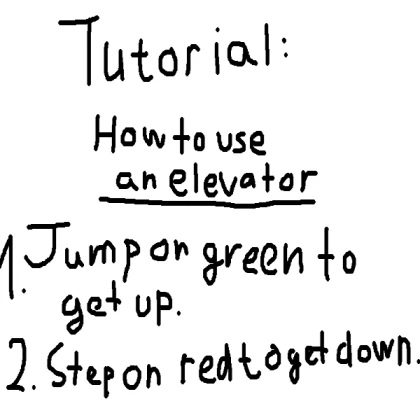 Tutorial:
How to use
an elevator
1. Jump on green to
get up.
2. Step on red to get down.